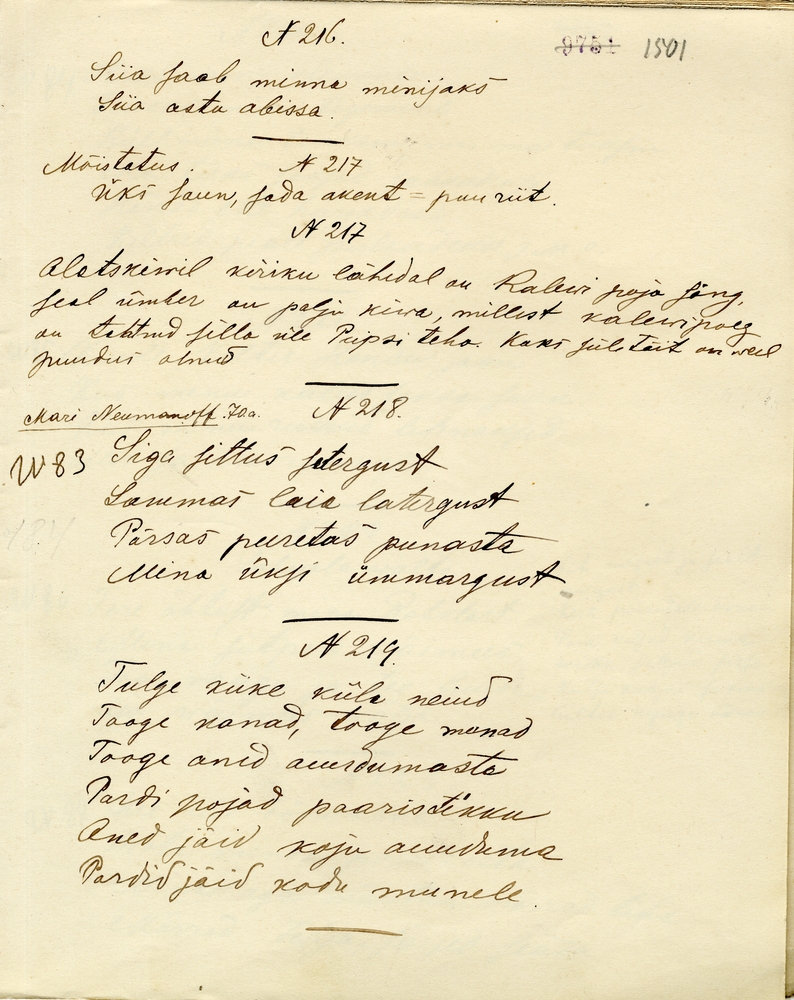 N 216.
9751 1501
Siia saab minna minijaks
Siia astu abissa.
Mõistatus. N 217
Üks saun, sada akent = puuriit.
N 217
Alatskiwil kiriku lähedal on Kalewi poja säng,
seal ümber on palju kiwa, millest kalewipoeg
on tahtnud silla üle Piipsi teha. Kaks süle täit on weel
puudus olnud
Mari Neumanoff. 70a. N 218.
W 83
Siga sittus sitergust
Lammas laia latergust
Põrsas peeretas punasta
Mina üksi ümmargust
N 219.
Tulge kiike küla neiud
Tooge kanad, tooge munad
Tooge aned auudumasta
Pardi pojad paaristikku
Aned jäid koju auuduma
Pardid jäid kodu munele.